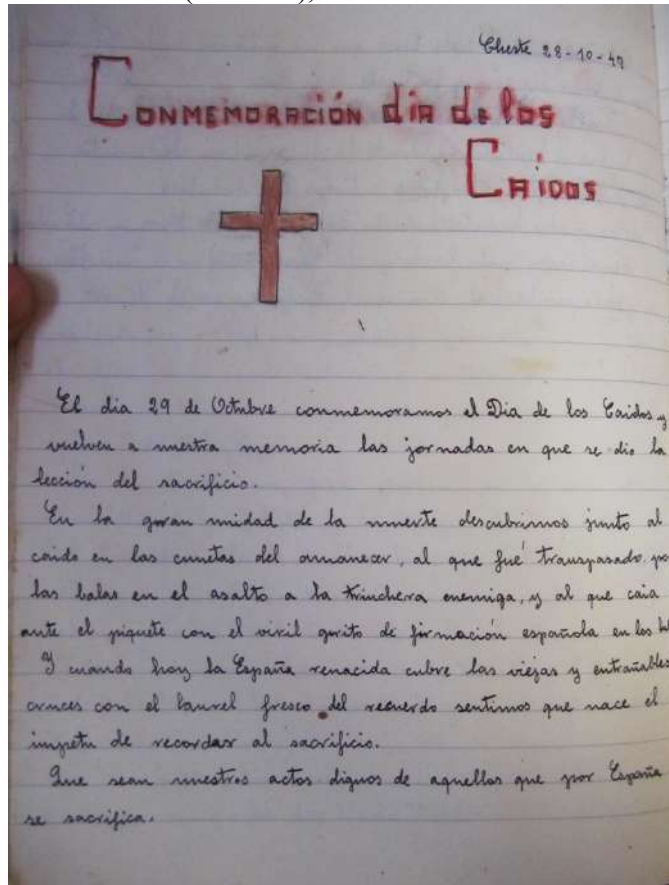 Cheste 28-10-49
CONMEMORACIÓN día de los
CAIDOS
El dia 29 de Octubre conmemoramos el Dia de los Caidos y
vuelven a nuestra memoria las jornadas en que se dio la
lección del sacrificio.
En la gran unidad de la muerte descubrimos junto al
caido en las cunetas del amanecer, al que fué transpasado por
las balas en el asalto a la trinchera enemiga, y al que caia
ante el piquete con el viril grito de firmación española en los
Y cuando hoy la España renacida cubre las viejas y entrañables
cruces con el laurel fresco del recuerdo sentimos que nace el
impetu de recordar al sacrificio.
Que sean nuestros actos dignos de aquellos que por España
se sacrifica.